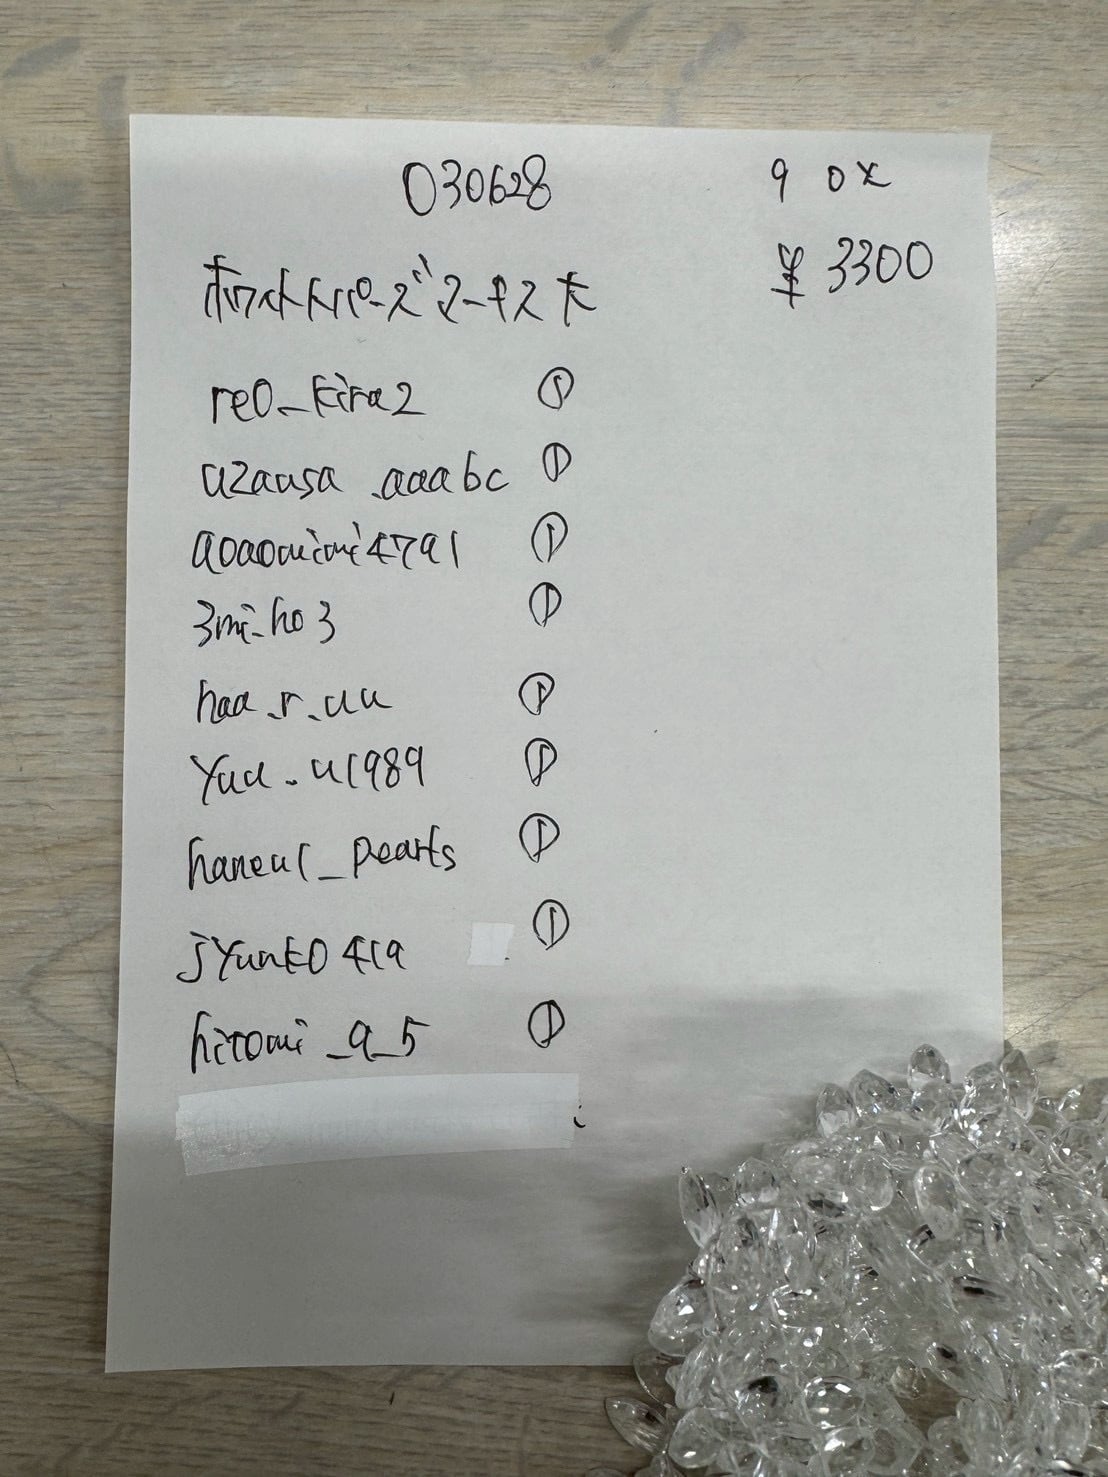 030628
9 0x
¥3300
ホワイトトパーズマーキス大
re0_kira2 ①
uzausa_aaabc ①
aoaomimi4791 ①
3mi_ho3 ①
haa_r_uu ①
yuu_u1989 ①
haneul_pearls ①
jyunko419 ①
hitomi_9_5 ①